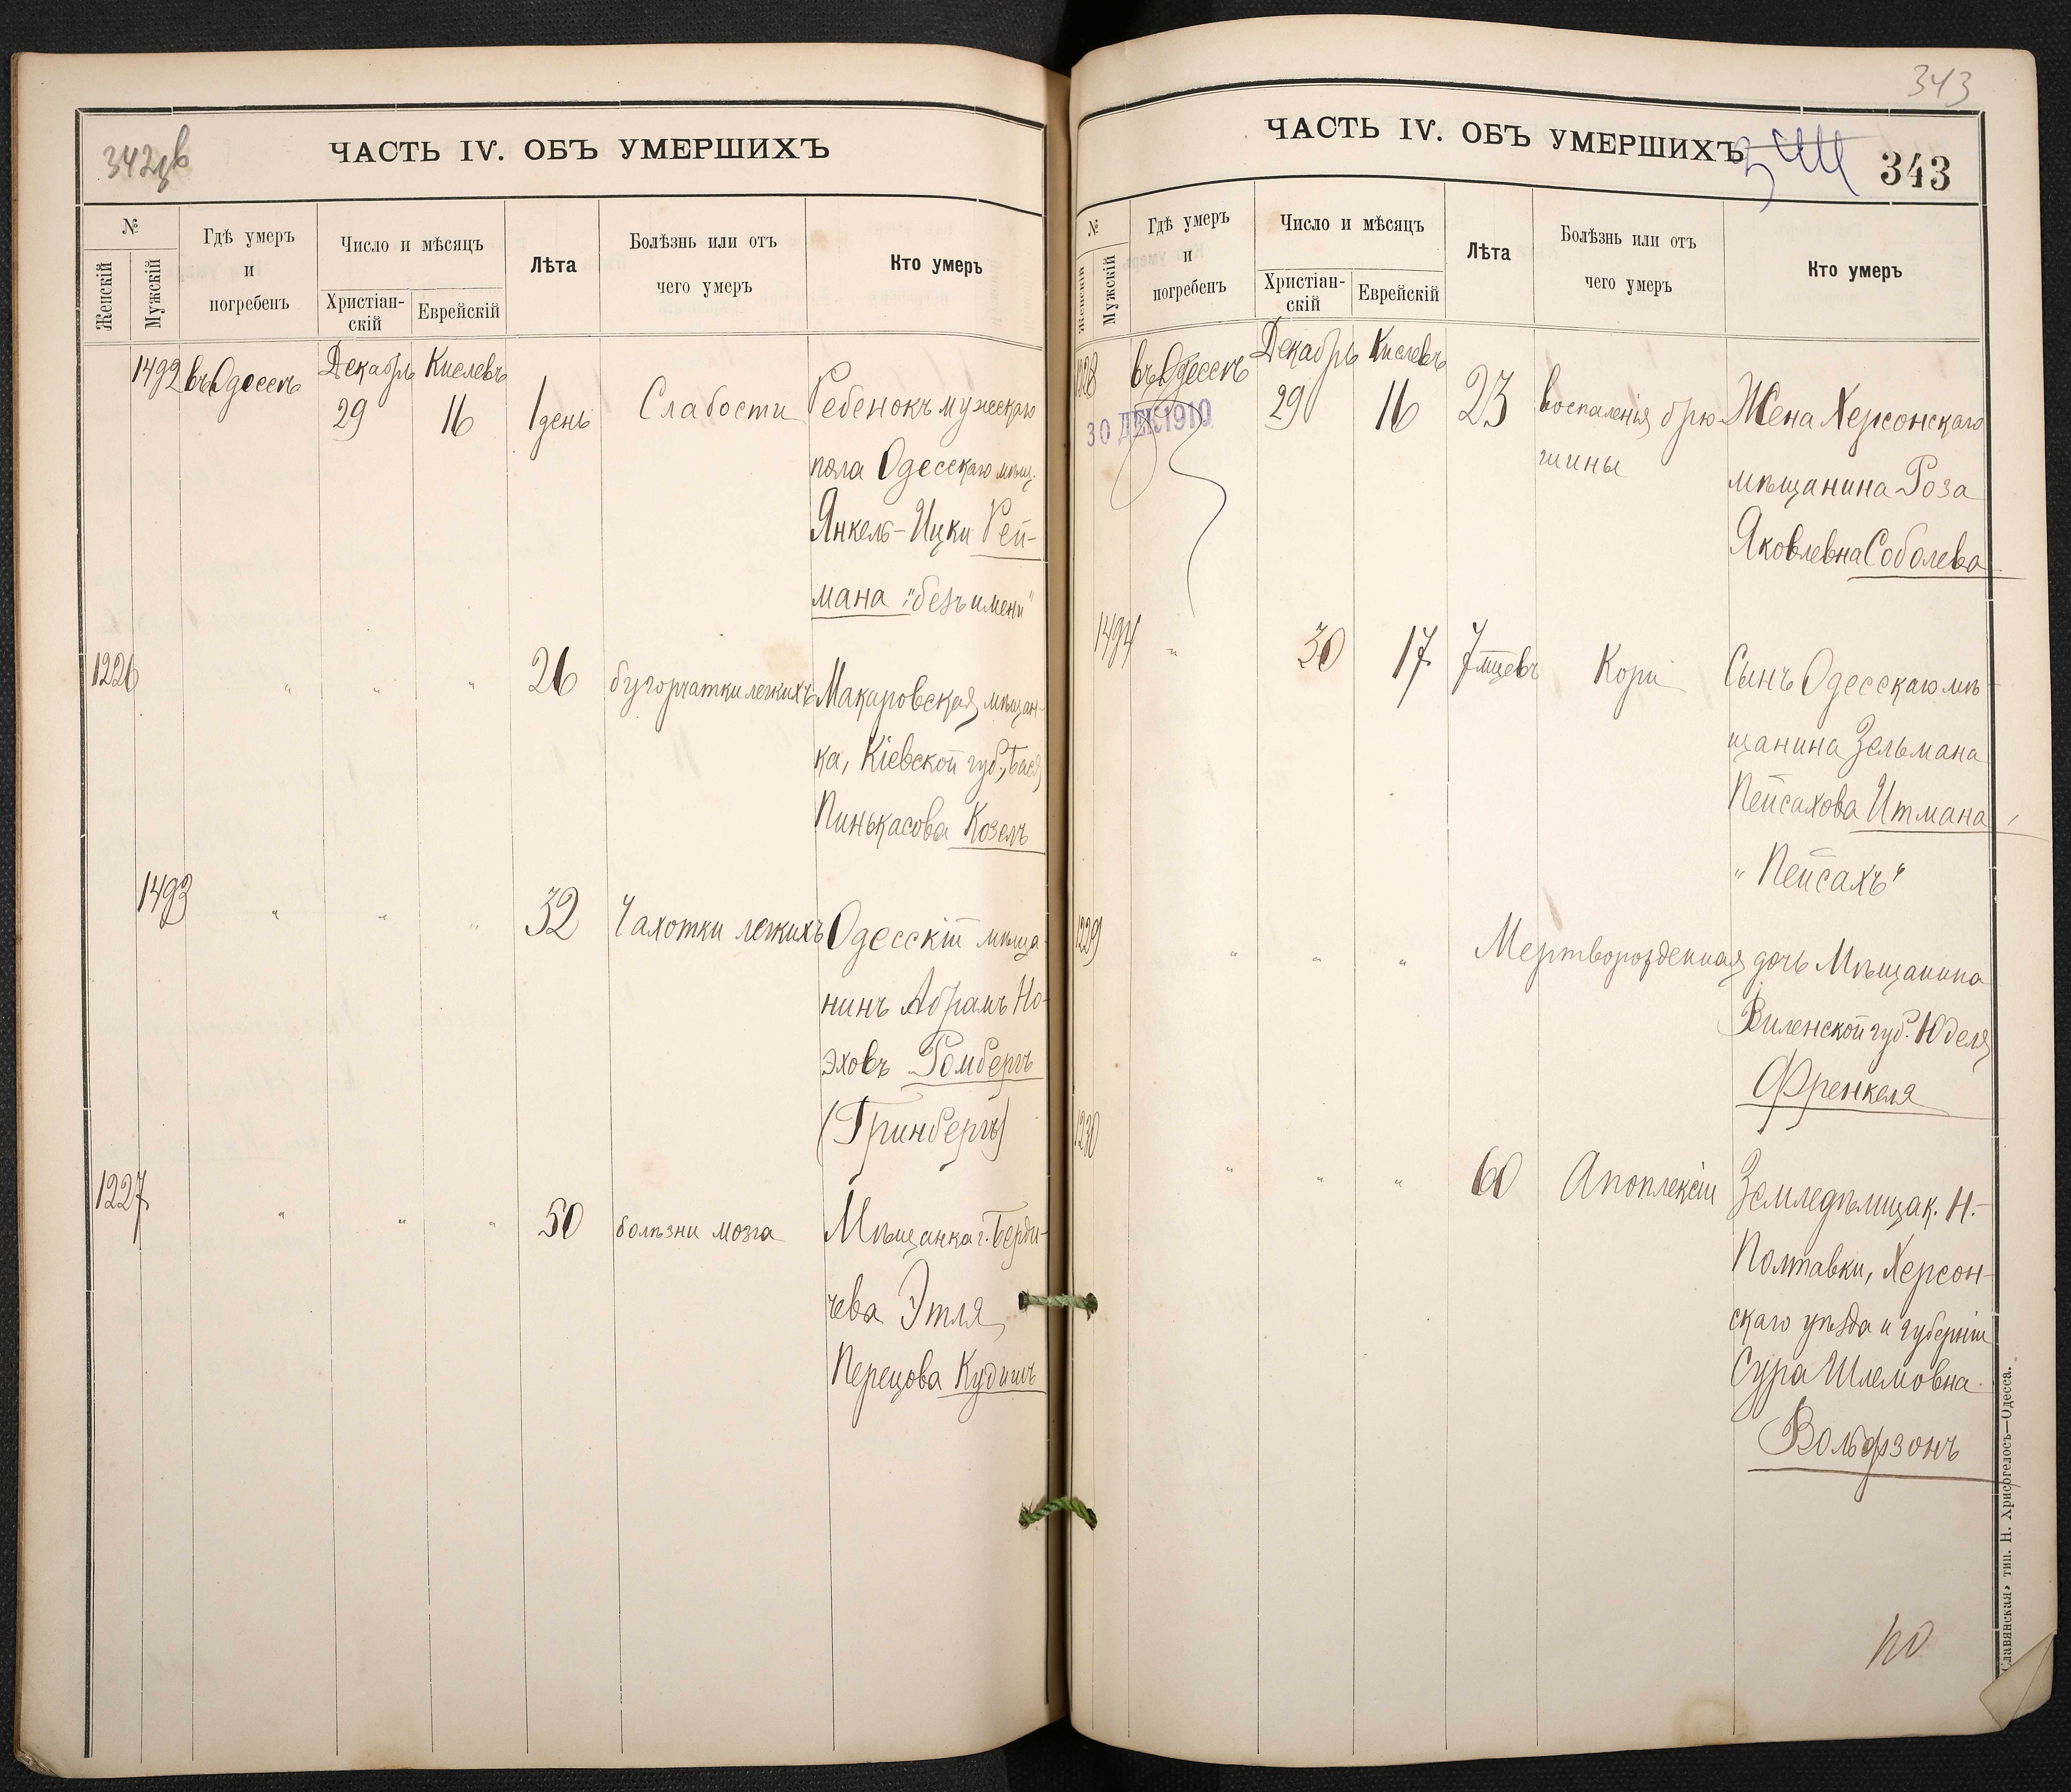 342 об
ЧАСТЬ IV. ОБЪ УМЕРШИХЪ
№
Женскій
Мужскій
Гдѣ умеръ
и
погребенъ
Число и мѣсяцъ
Христіан-
скій
Еврейскій
Лѣта
Болѣзнь или отъ
чего умеръ
Кто умеръ
1492 въ Одессѣ Декабрь 29 Кислевъ 16 1 день Слабости Ребенокъ мужескаго
пола Одесскаго мѣщ.
Янкель-Ицки Рей-
мана "безъ имени"
1226 " " " 26 бугорчатки легкихъ Макаровская мѣщан-
ка, Кіевской губ., Бася
Пинькасова Козелъ
1493 " " " 32 Чахотки легкихъ Одесскій мѣща-
нинъ Абрамъ Но-
эховъ Ромбергъ
(Гринбергъ)
1227 " " " 50 болѣзни мозга Мѣщанка г. Берди-
чева Этля
Перецова Кудишъ
343
ЧАСТЬ IV. ОБЪ УМЕРШИХЪ
343
№
Женскій
Мужскій
Гдѣ умеръ
и
погребенъ
Число и мѣсяцъ
Христіан-
скій
Еврейскій
Лѣта
Болѣзнь или отъ
чего умеръ
Кто умеръ
1228 въ Одессѣ Декабрь 29 Кислевъ 16 23 воспаленія брю- Жена Херсонскаго
30 ДЕК 1910
шины мѣщанина Роза
Яковлевна Соболева
1494 " 30 17 7 мцевъ Кори Сынъ Одесскаго мѣ-
щанина Зельмана
Пейсахова Итмана,
"Пейсахъ"
1229 " " " Мертворожденная дочь Мѣщанина
Виленской губ. Юделя
Френкеля
1230 " " " 60 Апоплексіи Земледѣлица к. Н.-
Полтавки, Херсон-
скаго уѣзда и губерніи
Сура Шлемовна
Вольфзонъ
«Славянская» тип. Н. Хрисогелосъ—Одесса.